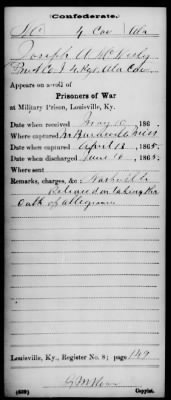 Confederate.
4 Cav Ala
Joseph A McKerly
Pvt Co I 4 Rgt. Ala Cav
Appears on a roll of
Prisoners of War
at Military Prison, Louisville, Ky.
Date when received May 10, 186 .
Where captured
Date when captured April 13, 1865.
Date when discharged June 10, 1865.
Where sent
Remarks, charges, &c: Nashville
Released on taking the
oath of allegiance
Louisville, Ky., Register No. 8; page 149
(639) Copyist.